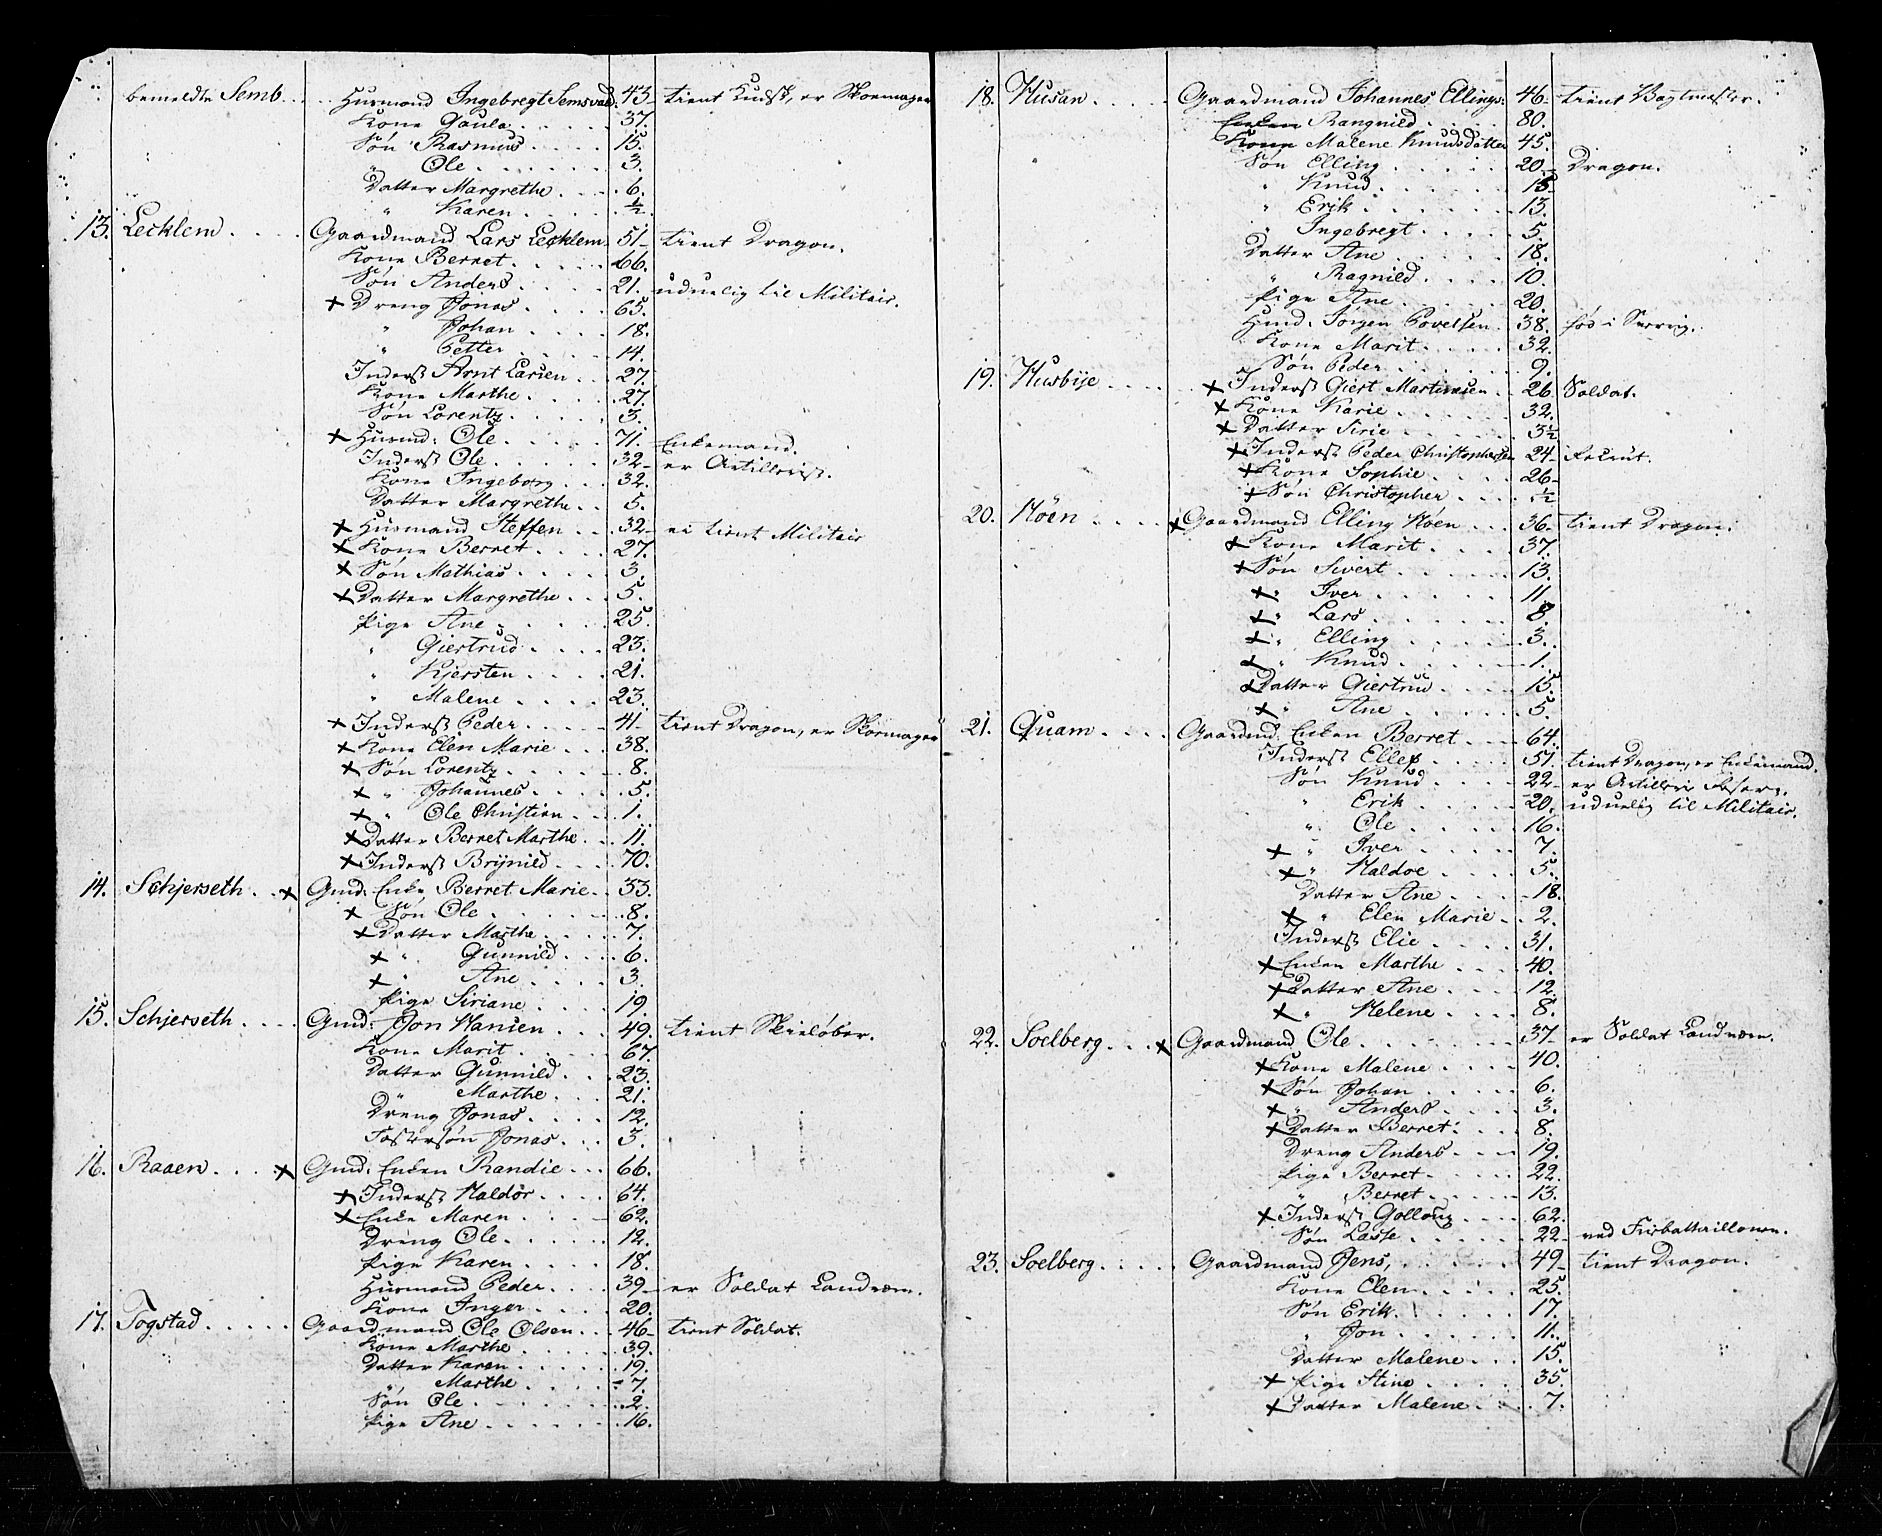 bemeldte Semb . . . Huusmand Ingebregt Semsvald. 43– tient Kudsk, er Skoemager
Kone Paula . . . 37.
Søn Rasmus . . . 15.
" Ole . . . 3.
Datter Margrethe . . . 6.
" Karen . . . ½.
13. Lecklem . . . Gaardmand Lars Lecklem. 51– tient Dragon.
Kone Berret . . . 66.
Søn Anders . . . 21. uduelig til Militair.
+ Dreng Jonas . . . 65.
" Johan . . . 18.
" Petter . . . 14.
Inderst Arnt Larsen . . . 27.
Kone Marthe . . . 27.
Søn Lorentz . . . 3.
+ Husmd: Ole . . . 71. Enkemand.
Inderst Ole . . . 32– er Artillerist.
Kone Ingeborg . . . 32.
Datter Margrethe . . . 5.
+ Husmand Steffen . . . 32– ei tient Militair
+ Kone Berret . . . 27.
+ Søn Mathias . . . 3.
+ Datter Margrethe . . . 5.
Pige Ane . . . 25.
" Giertrud . . . 23.
" Kjersten . . . 21.
" Malene . . . 23.
+ Inderst Peder . . . 41– tient Dragon, er Skoemager
+ Kone Elen Marie . . . 38.
+ Søn Lorentz . . . 8.
+ " Johannes . . . 5.
+ " Ole Christian . . . 1.
+ Datter Berret Marthe . . . 11.
+ Inderst Brynild . . . 70.
14. Schjerseth . . + Gmd: Enke Berret Marie . . 33.
+ Søn Ole . . . 8.
+ Datter Marthe . . . 7.
+ " Gunnild . . . 6.
+ " Ane . . . 3.
Pige Siriane . . . 19.
15. Schjerseth . . . Gmd: Jon Hansen . . . 49. tient Skieløber.
Kone Marit . . . 67.
Datter Gunnild . . . 23.
" Marthe . . . 21.
Dreng Jonas . . . 12.
Fostersøn Jonas . . . 3.
16. Raaen . . . + Gmd: Enken Randie . . . 66.
+ Inderst Haldor . . . 64.
+ Enke Maren . . . 62.
Dreng Ole . . . 12.
Pige Karen . . . 18.
Husmand Peder . . . 39– er Soldat Landværn.
Kone Inger . . . 20.
17. Togstad . . . Gaardmand Ole Olsen . . . 46– tient Soldat.
Kone Marthe . . . 39.
Datter Karen . . . 19.
" Marthe . . . 7.
Søn Ole . . . 2.
Pige Ane . . . 16.
18. Husan . . . Gaardmand Johannes Ellings: 46– tient Vagtmester.
Enken Rangnild . . . 80.
Kone Malene Knudsdatter 45.
Søn Elling . . . 20– Dragon.
" Knud . . . 15
" Erik . . . 13.
" Ingebregt . . . 5.
Datter Ane . . . 18.
" Ragnild . . . 10.
Pige Ane . . . 20.
Husmd: Jørgen Povelsen . 38. fød i Sverrig.
Kone Marit . . . 32.
Søn Peder . . . 9.
19. Husbye . . . + Inderst Giert Martinusen . . 26 Soldat.
+ Kone Karie . . . 32.
+ Datter Sirie . . . 3½
+ Inderst Peder Christophersen 24– Rekrut.
+ Kone Sophie . . . 26–
+ Søn Christopher . . . ½
20. Høen . . . + Gaardmand Elling Høen . . . 36– tient Dragon.
+ Kone Marit . . . 37.
+ Søn Sivert . . . 13.
+ " Iver . . . 11.
+ " Lars . . . 8.
+ " Elling . . . 3.
+ " Knud . . . 1.
+ Datter Giertrud . . . 15.
+ " Ane . . . 5.
21. Quam . . . Gaardmd: Enken Berret . . . 64.
Inderst Ellef . . . 51. tient Dragon, er Enkemand.
Søn Knud . . . 22– er Artillerie Reserv.
" Erik . . . 20. uduelig til Militair.
" Ole . . . 16.
+ " Iver . . . 7.
+ " Haldoe . . . 5.
Datter Ane . . . 18.
+ " Elen Marie . . 2.
Inderst Elie . . . 31.
+ Enken Marthe . . . 40.
+ Datter Ane . . . 12.
+ " Helene . . . 8.
22. Soelberg . . . + Gaardmand Ole . . . 37– er Soldat Landværn.
+ Kone Malene . . . 40.
+ Søn Johan . . . 6.
+ " Anders . . . 3.
+ Datter Berret . . . 8.
Dreng Anders . . . 19.
Pige Berret . . . 22.
" Berret . . . 13.
+ Inderst Gollouq . . . 62.
Søn Lasse . . . 22–
23. Soelberg . . . Gaardmand Jens, . . . 49– tient Dragon.
Kone Elen . . . 25.
Søn Erik . . . 17.
" Jon . . . 11.
Datter Malene . . . 15.
+ Pige Stine . . . 35.
+ Datter Malene . . . 7.